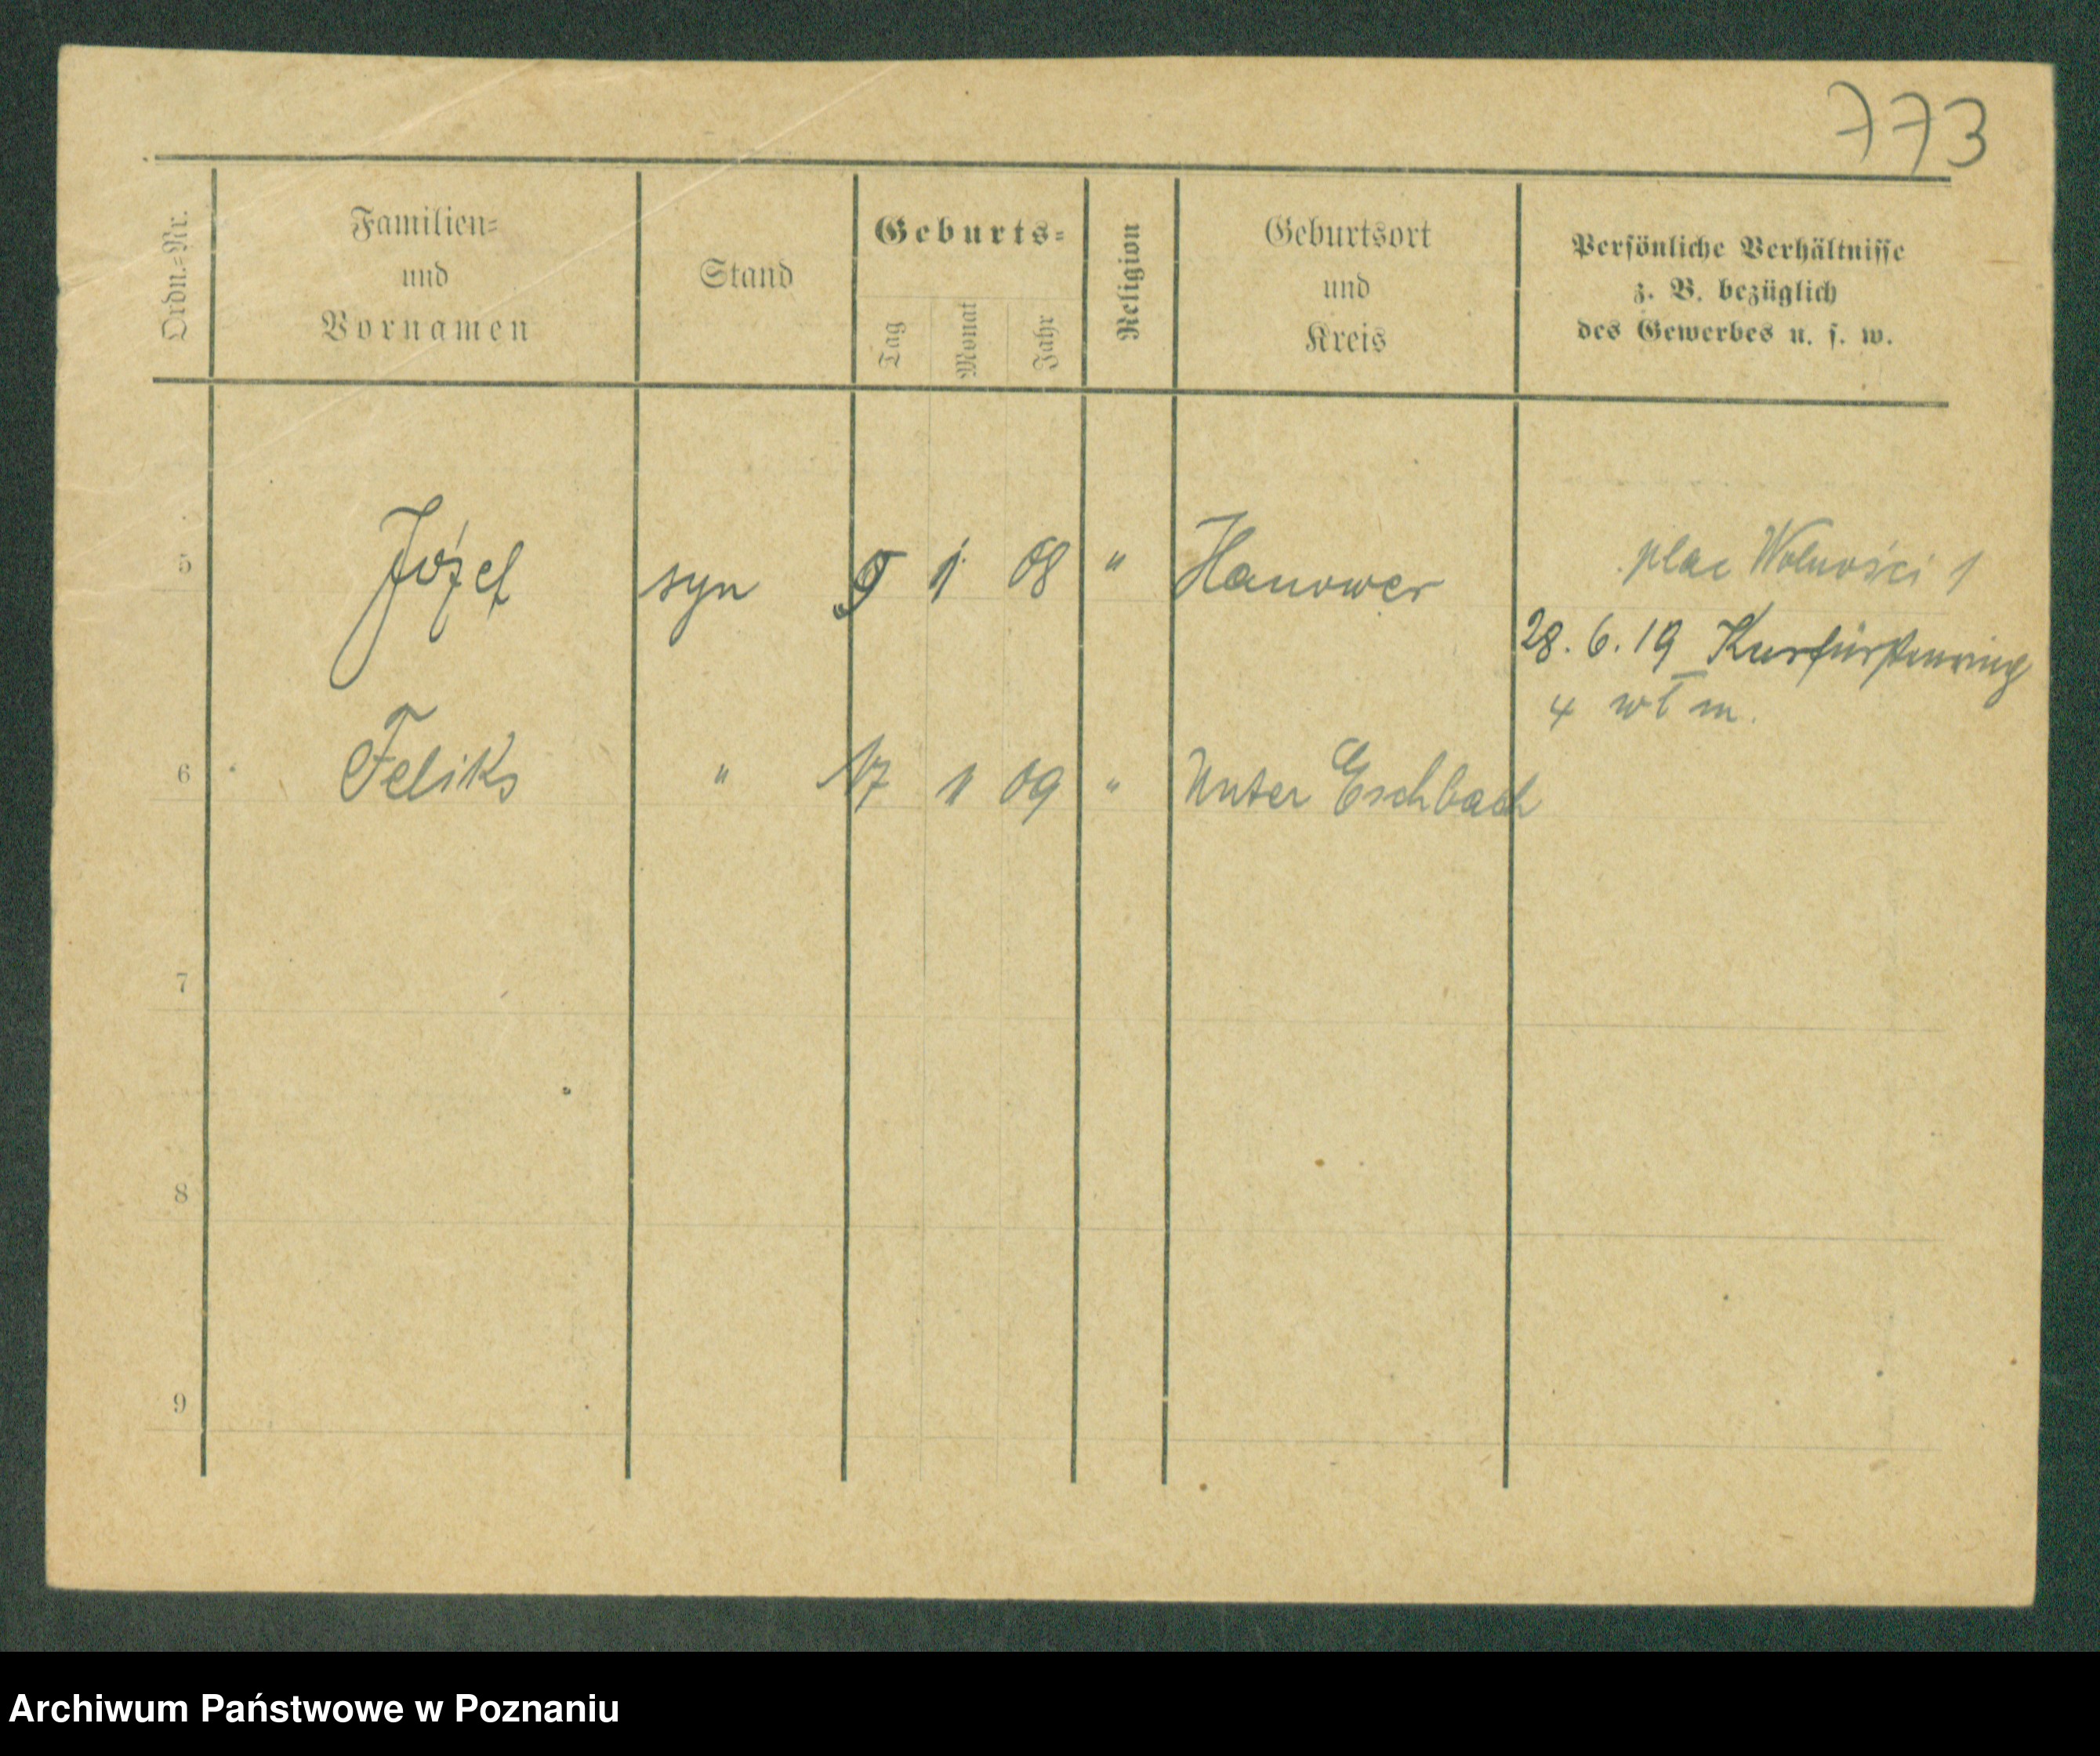 773
Ordn.-Nr.
Familien-
und
Vornamen
Stand
Geburts-
Tag
Monat
Jahr
Religion
Geburtsort
und
Kreis
Persönliche Verhältnisse
z. B. bezüglich
des Gewerbes u. s. w.
5 Józef syn 9 1 08 " Hanower plac Wolności 1
28. 6. 19 Kurfürstenring
4 wł m.
6 Feliks " 17 1 09 " Unter Eschbach
7
8
9
Archiwum Państwowe w Poznaniu